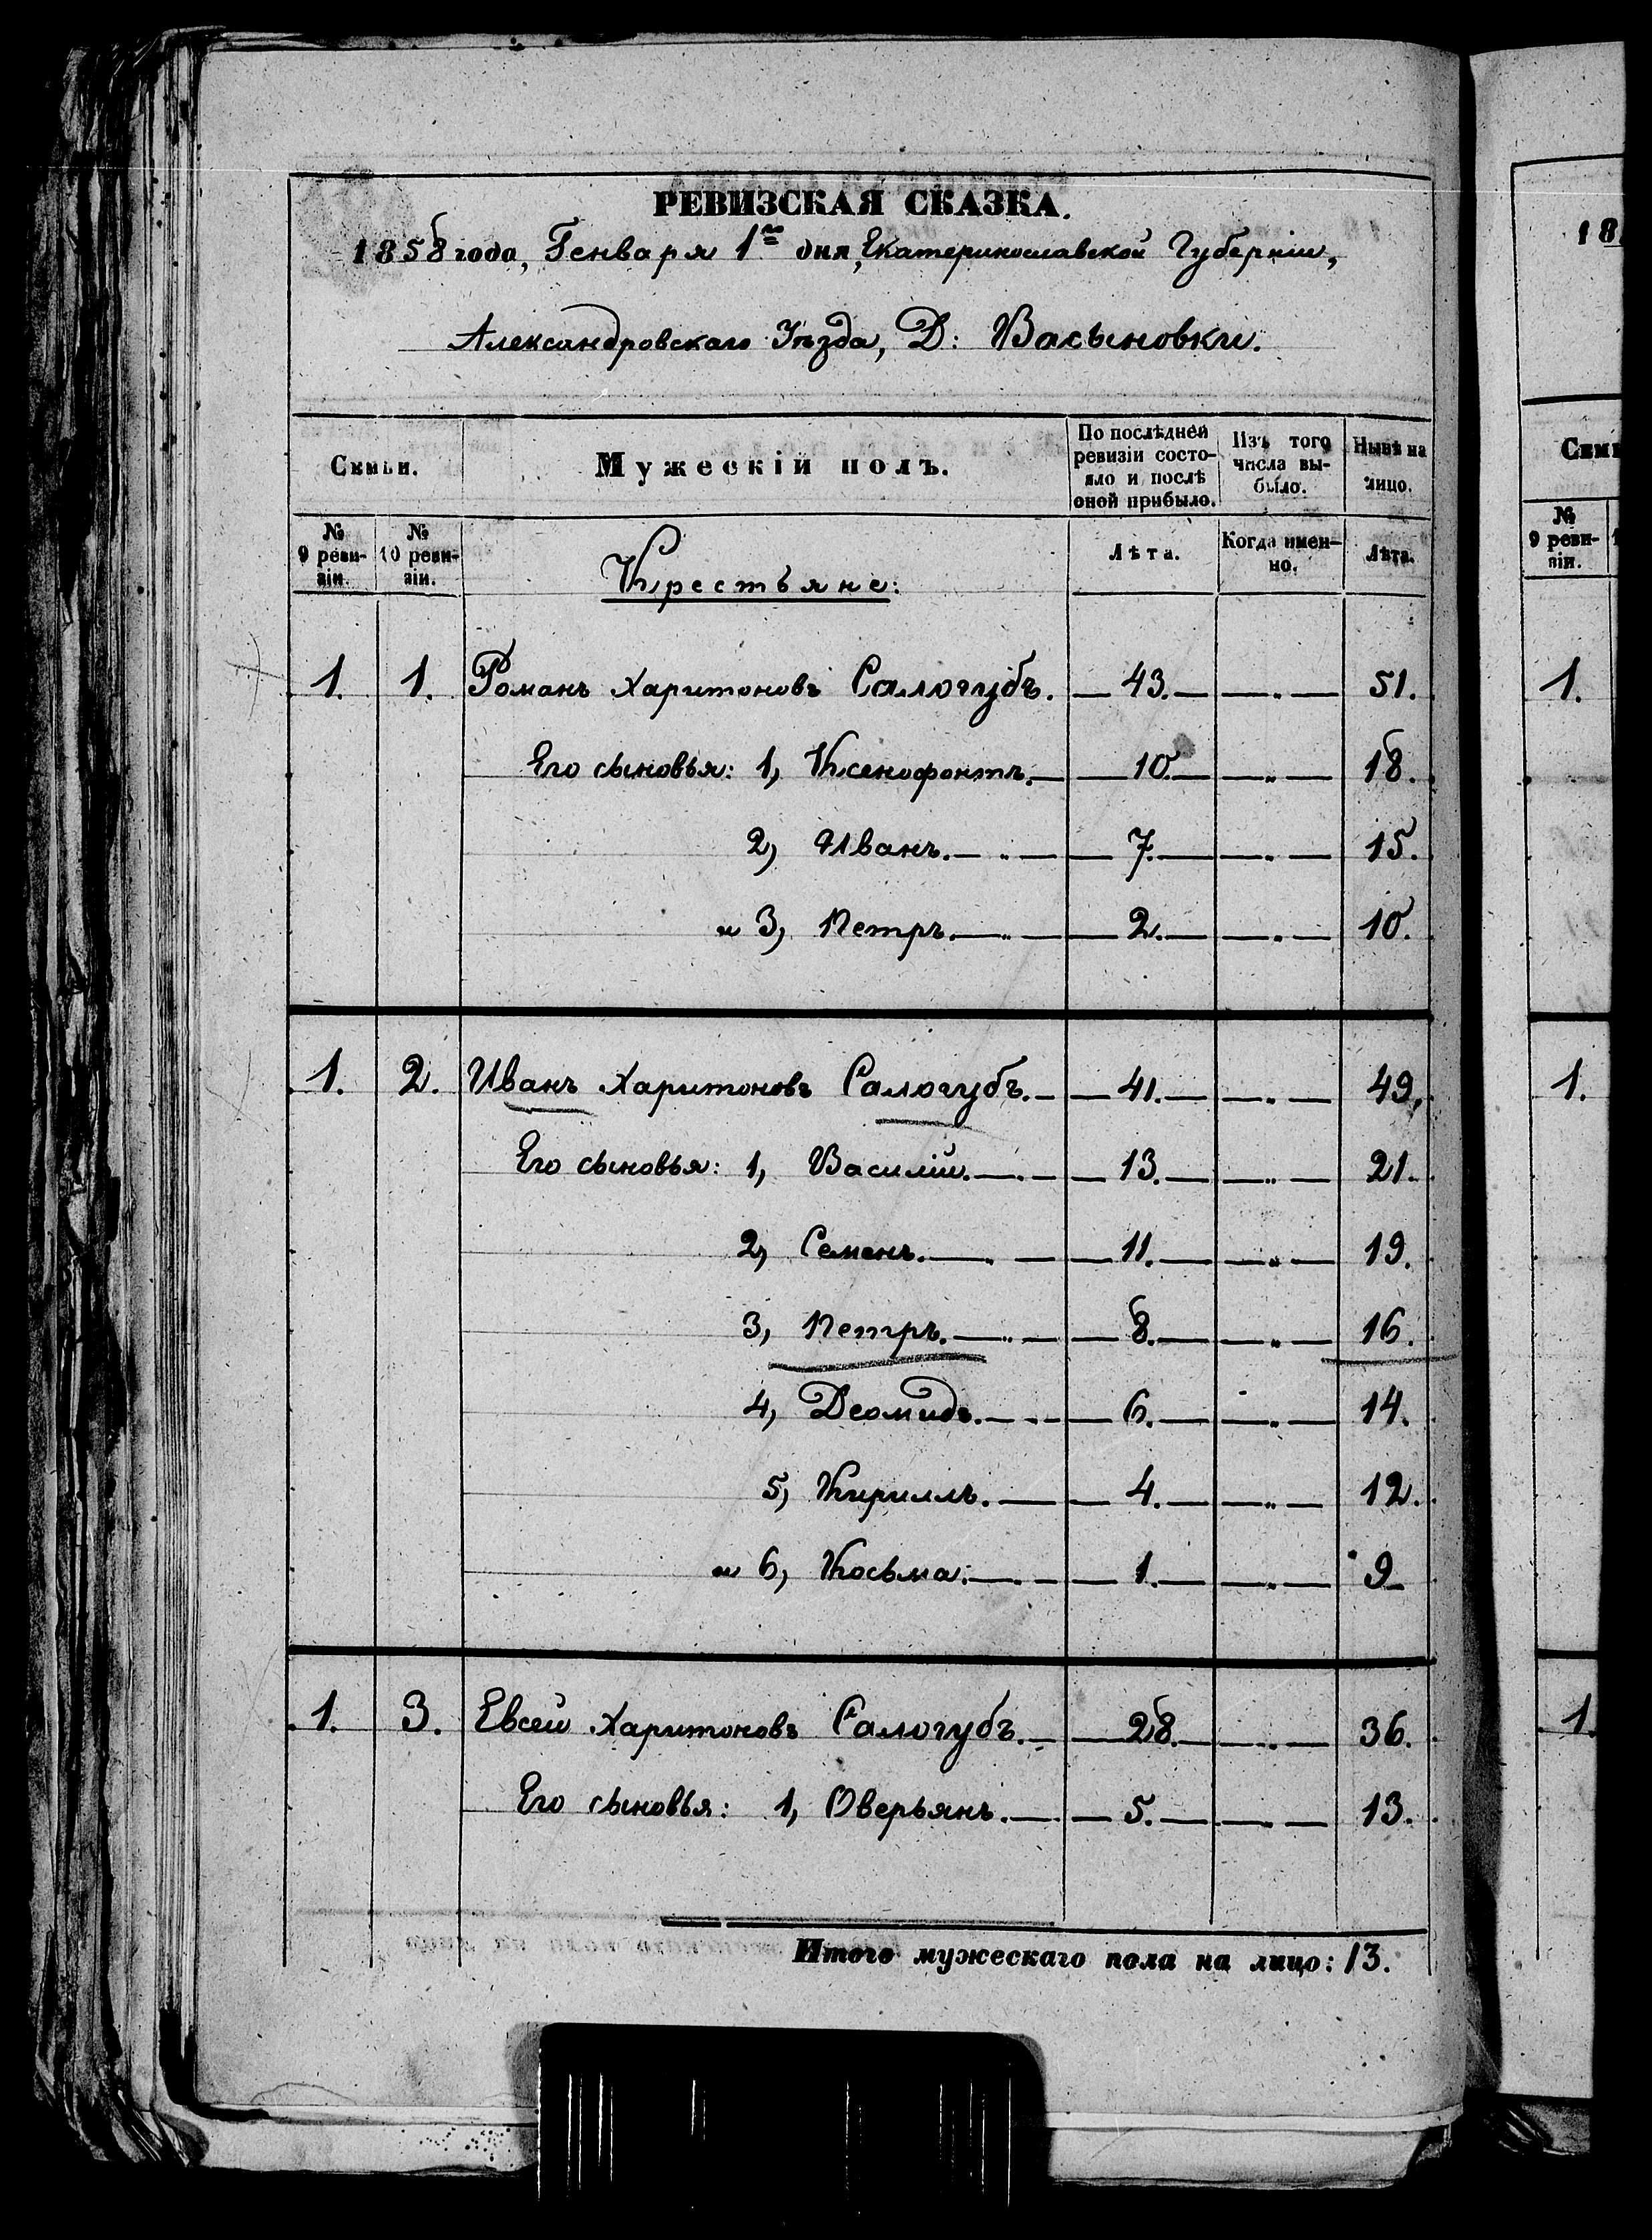 РЕВИЗСКАЯ СКАЗКА.
1858 года, Генваря 1го дня, Екатеринославской Губерніи,
Александровскаго Уѣзда, Д: Васыновки.
Семьи. Мужескій полъ. По послѣдней ревизіи состояло и послѣ оной прибыло. Изъ того числа выбыло. Нынѣ на лицо.
№ 9 ревизіи. № 10 ревизіи. Крестьяне: Лѣта. Когда именно. Лѣта.
1. 1. Романъ Харитоновъ Салогубъ. — 43. — — „ — 51.
Его сыновья: 1, Ксенофонтъ. — 10. — — „ — 18.
2, Иванъ. — „ — — 7. — — „ — 15.
и 3, Петръ. — „ — — 2. — — „ — 10.
1. 2. Иванъ Харитоновъ Салогубъ. — — 41. — — „ — 49.
Его сыновья: 1, Василій. — „ — — 13. — — „ — 21.
2, Семенъ. — „ — — 11. — — „ — 19.
3, Петръ. — „ — — 8. — — „ — 16.
4, Деомидъ. — — — 6. — — „ — 14.
5, Кириллъ. — — 4. — — „ — 12.
и 6, Косьма. — „ — — 1. — — „ — 9
1. 3. Евсей Харитоновъ Салогубъ. — — 28. — — „ — 36.
Его сыновья: 1, Оверьянъ. — — 5. — — „ — 13.
Итого мужескаго пола на лицо: 13.
18
Семь
№ 9 ревизіи.
1.
1.
1.